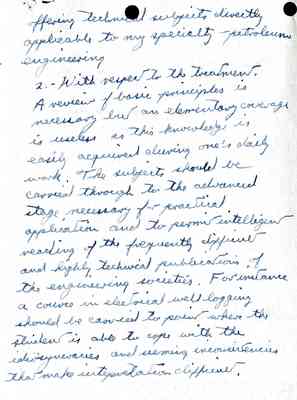 offering technical subjects directly
applicable to my specialty - petroleum
engineering
2. - With respect to the treatment.
A review of basic principles is
necessary but an elementary coverage
is useless as this knowledge is
easily acquired during one's daily
work. The subjects should be
carried through to the advanced
stage necessary for practical
application and to permit intelligent
reading of the frequently difficult
and highly technical publications of
the engineering societies. For instance
a course in electrical well logging
should be carried to point where the
student is able to cope with the
idiosyncracies and seeming inconsistencies
that make interpretation difficult.